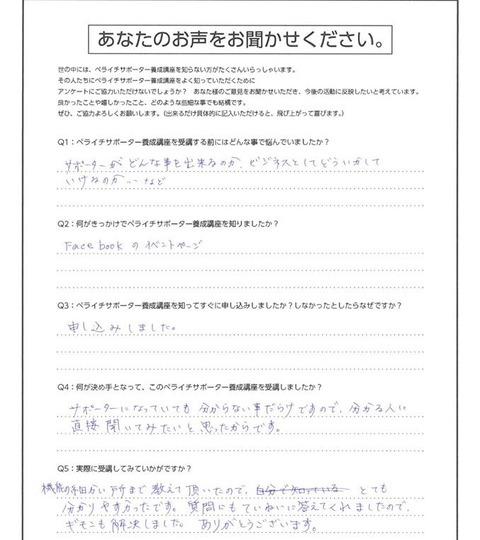 あなたのお声をお聞かせください。
世の中には、ペライチサポーター養成講座を知らない方がたくさんいらっしゃいます。
その人たちにペライチサポーター養成講座をよく知っていただくために
アンケートにご協力いただけないでしょうか？ あなた様のご意見をお聞かせいただき、今後の活動に反映したいと考えています。
良かったことや嬉しかったこと、どのような些細な事でも結構です。
ぜひ、ご協力よろしくお願いします。(出来るだけ具体的に記入いただけると、飛び上がって喜びます。)
Q1：ペライチサポーター養成講座を受講する前にはどんな事で悩んでいましたか？
サポーターがどんな事を出来るのか、ビジネスとしてどういかして
いけるのか…など
Q2：何がきっかけでペライチサポーター養成講座を知りましたか？
Facebookのイベントページ
Q3：ペライチサポーター養成講座を知ってすぐに申し込みしましたか？しなかったとしたらなぜですか？
申し込みしました。
Q4：何が決め手となって、このペライチサポーター養成講座を受講しましたか？
サポーターになっていても分からない事だらけですので、分かる人に
直接聞いてみたいと思ったからです。
Q5：実際に受講してみていかがですか？
機能の細かい所まで教えて頂いたので、自分で知っている とても
分かりやすかったです。質問にもていねいに答えてくれましたので、
ギモンも解決しました。ありがとうございます。